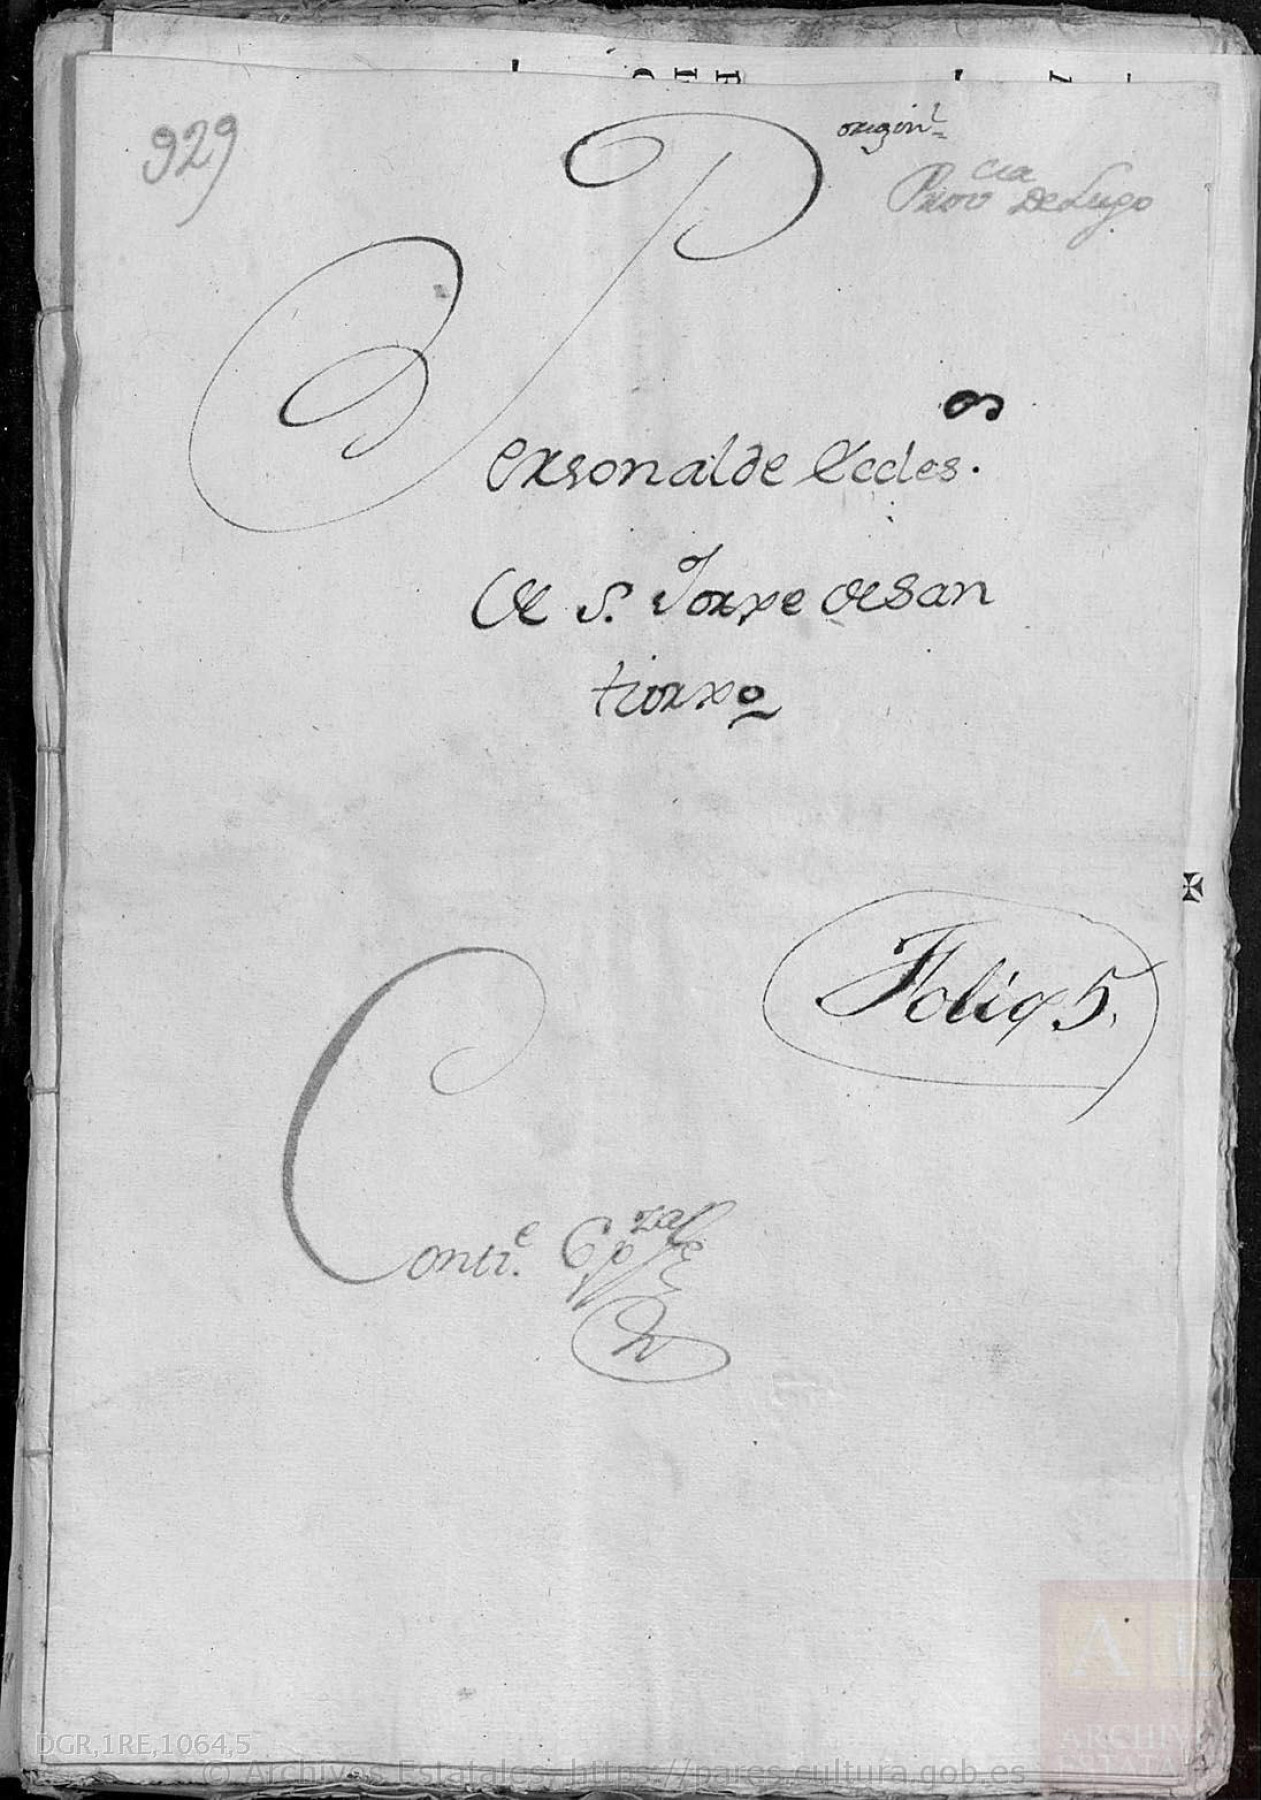 929
origin.l
Prov.cia De Lugo
Personal de Eccles.os
de S. Jorxe de San
tiorxo
Folio 5.
Conti.e
DGR,1RE,1064,5
© Archivos Estatales, https://pares.cultura.gob.es
ARCHIV
ESTATA